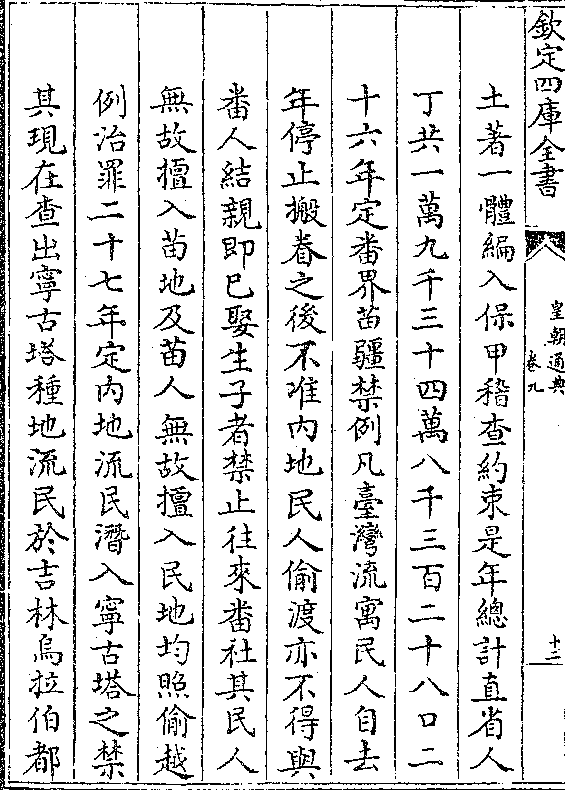 欽定四庫全書
皇朝通典
卷九
十二
土著一體編入保甲稽查約束是年總計直省人
丁共一萬九千三十四萬八千三百二十八口二
十六年定番界苗疆禁例凡臺灣流寓民人自去
年停止搬眷之後不准內地民人偷渡亦不得與
番人結親即已娶生子者禁止往來番社其民人
無故擅入苗地及苗人無故擅入民地均照偷越
例治罪二十七年定內地流民潛入寧古塔之禁
其現在查出寧古塔種地流民於吉林烏拉伯都